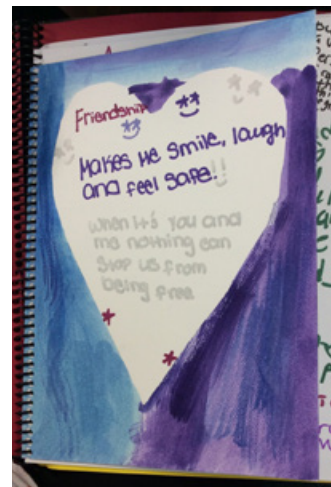 Friendship
Makes Me Smile, laugh
and feel safe!!
When it's you and
me nothing can
stop us from
being free